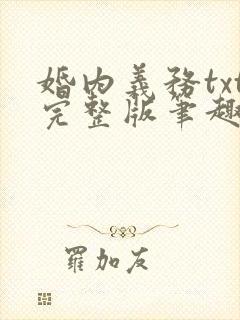 婚内義務txt
完整版筆趣
羅加友